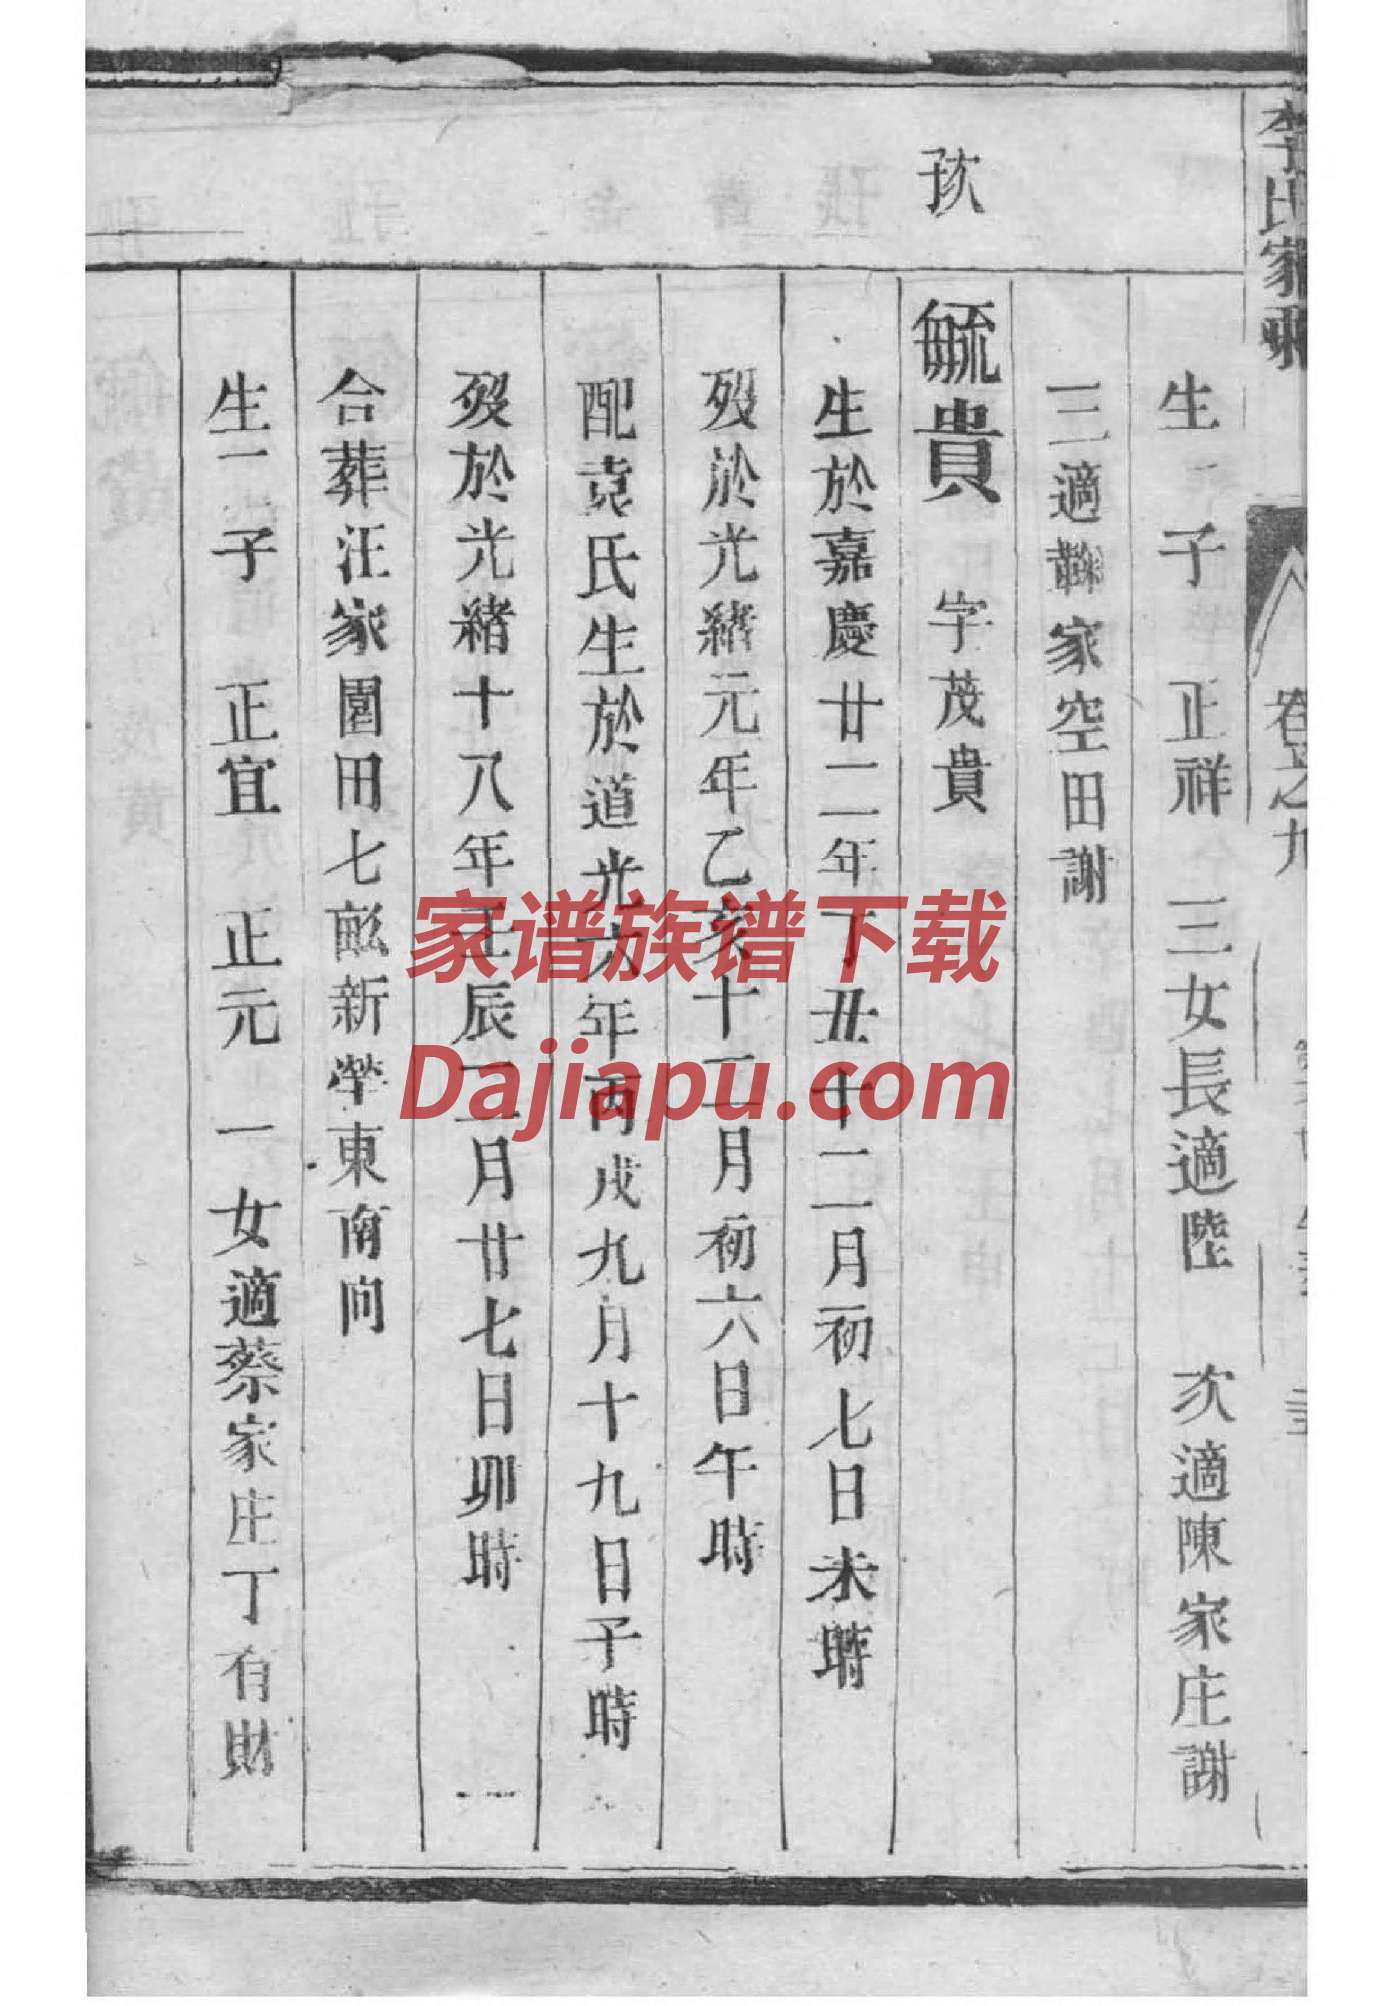 李氏家乘
卷之九
生一子 正祥 三女長適陸 次適陳家庄謝
三適 家空田謝
毓貴 字茂貴
生於嘉慶廿二年丁丑十二月初七日未時
歿於光緒元年乙亥十二月初六日午時
配袁氏生於道光六年丙戌九月十九日子時
歿於光緒十八年壬辰二月廿七日卯時
合葬汪家園田七畝新塋東南向
生二子 正宜 正元 一女適蔡家庄丁有財
家谱族谱下载
Dajiapu.com